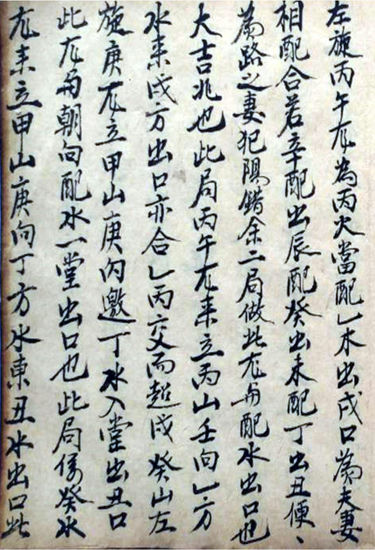 左旋丙午龙為丙火當配乙木出戍口為夫妻
相配合若辛配出辰配癸出未配丁出丑便〻
為路之妻犯陽錯余二局做此龙与配水出口也
大吉兆也此局丙午龙来立丙山壬向乙方
水来戍方出口亦合乙丙交而趨戍癸山左
旋庚龙立甲山庚向邀丁水入堂出丑口
此龙与朝向配水一堂出口也此局係癸水
龙来立甲山庚向丁方水東丑水出口此